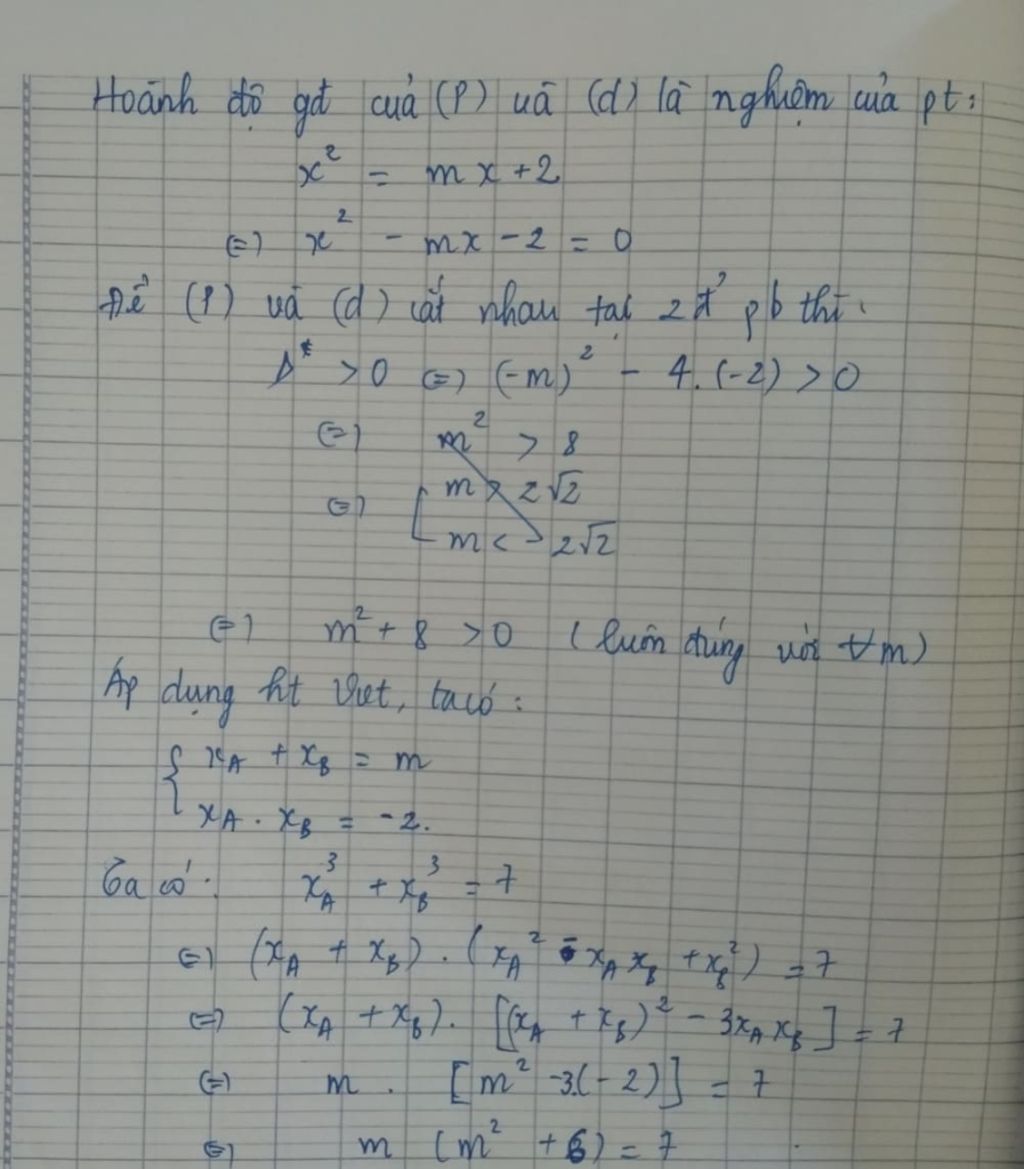 Hoành độ gđ của (P) và (d) là nghiệm của pt:
x² = mx + 2
⇔ x² - mx - 2 = 0
Để (P) và (d) cắt nhau tại 2 đ' pb thì:
Δ > 0 ⇔ (-m)² - 4.(-2) > 0
⇔ m² > 8
⇔ [ m > 2√2
m < -2√2
⇔ m² + 8 > 0 (luôn đúng với ∀m)
Áp dụng ht Viet, ta có:
{ x_A + x_B = m
x_A . x_B = -2.
Ta có: x_A³ + x_B³ = 7
⇔ (x_A + x_B) . (x_A² - x_A x_B + x_B²) = 7
⇔ (x_A + x_B). [(x_A + x_B)² - 3x_A x_B] = 7
⇔ m . [m² - 3.(-2)] = 7
⇔ m (m² + 6) = 7